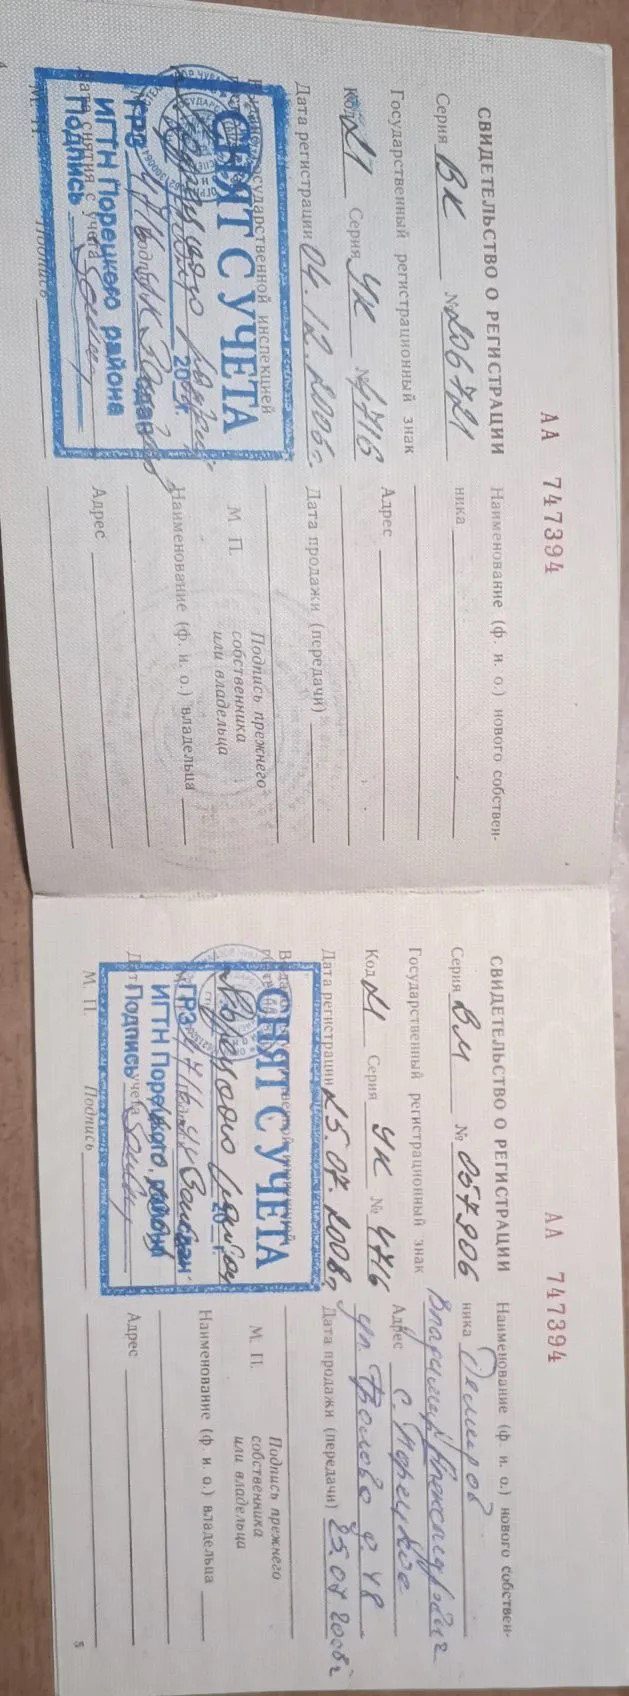 АА 747394
СВИДЕТЕЛЬСТВО О РЕГИСТРАЦИИ
Серия ВК № 206721
Государственный регистрационный знак
Код 21 Серия УК № 4716
Дата регистрации 04.12.2006г.
государственной инспекцией
СНЯТ С УЧЕТА
20 г.
ГРЗ 4716 УК
ИГТН Порецкого района
Дата снятия с учета
Подпись
М. П. Подпись
Наименование (ф. и. о.) нового собствен-
ника
Адрес
Дата продажи (передачи)
М. П. Подпись прежнего
собственника
или владельца
Наименование (ф. и. о.) владельца
Адрес
АА 747394
СВИДЕТЕЛЬСТВО О РЕГИСТРАЦИИ
Серия ВМ № 057906
Государственный регистрационный знак
Код 21 Серия УК № 4716
Дата регистрации 25.07.2008г
СНЯТ С УЧЕТА
20 г.
ГРЗ 4716 УК
ИГТН Порецкого района
учета
Подпись
М. П. Подпись
Наименование (ф. и. о.) нового собствен-
ника
Владимир
Адрес с. Порецкое
ул. д. 48
Дата продажи (передачи) 25.07.2008г
М. П. Подпись прежнего
собственника
или владельца
Наименование (ф. и. о.) владельца
Адрес
5